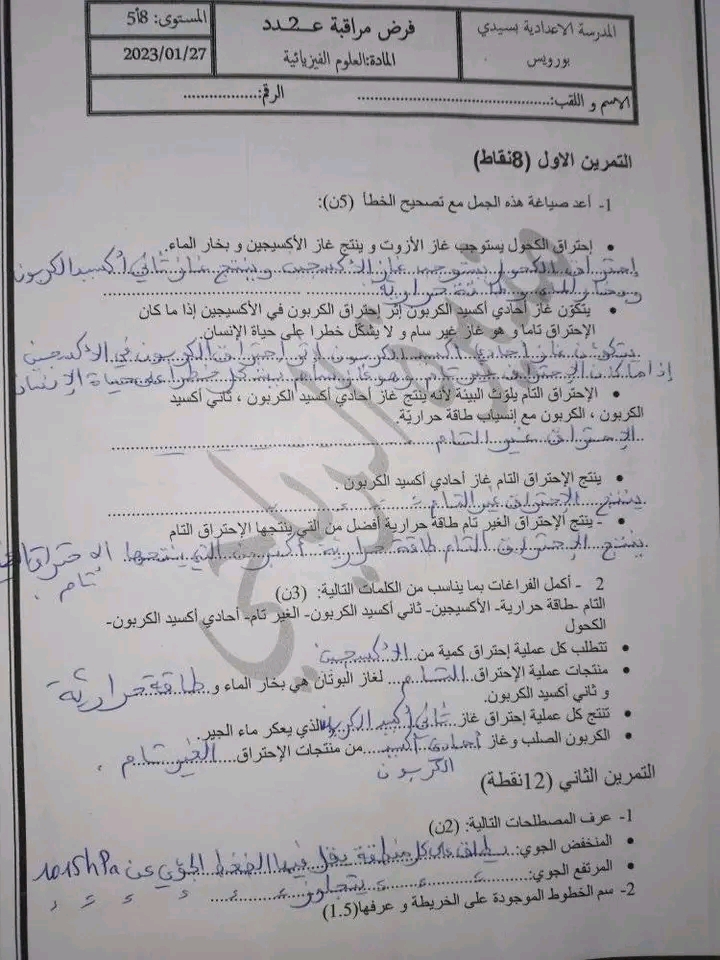 المدرسة الاعدادية بسيدي بورويس
فرض مراقبة عـــ2ــدد
المادة:العلوم الفيزيائية
المستوى: 8أ5
2023/01/27
الاسم و اللقب:.......................................................... الرقم:..................
التمرين الاول (8نقاط)
1- أعد صياغة هذه الجمل مع تصحيح الخطأ (5ن):
• إحتراق الكحول يستوجب غاز الأزوت و ينتج غاز الأكسيجين و بخار الماء.
إحتراق الكحول يستوجب غاز الأكسجين و ينتج غاز ثاني أكسيد الكربون
وبخار الماء و طاقة حرارية
• يتكوّن غاز أحادي أكسيد الكربون إثر إحتراق الكربون في الأكسيجين إذا ما كان
الإحتراق تاما و هو غاز غير سام و لا يشكّل خطرا على حياة الإنسان.
يتكون غاز أحادي أكسيد الكربون إثر إحتراق الكربون في الأكسجين
إذا ما كان الإحتراق غير تام وهو غاز سام يشكل خطر على حياة الإنسان
• الإحتراق التام يلوّث البيئة لأنه ينتج غاز أحادي أكسيد الكربون ، ثاني أكسيد
الكربون ، الكربون مع إنسياب طاقة حراريّة.
الإحتراق غير التام
• ينتج الإحتراق التام غاز أحادي أكسيد الكربون .
ينتج الإحتراق غير التام
• - ينتج الإحتراق الغير تام طاقة حرارية أفضل من التي ينتجها الإحتراق التام
ينتج الإحتراق التام طاقة حرارية أكبر من التي ينتجها الإحتراق
تام .
2 - أكمل الفراغات بما يناسب من الكلمات التالية: (3ن)
التام -طاقة حرارية- الأكسيجين- ثاني أكسيد الكربون- الغير تام- أحادي أكسيد الكربون-
الكحول
• تتطلب كل عملية إحتراق كمية من الأكسجين
• منتجات عملية الإحتراق التام لغاز البوتان هي بخار الماء و طاقة حرارية
و ثاني أكسيد الكربون.
• تنتج كل عملية إحتراق غاز ثاني أكسيد الكربون الذي يعكر ماء الجير.
• الكربون الصلب وغاز أحادي أكسيد الكربون من منتجات الإحتراق الغير تام .
التمرين الثاني (12نقطة)
1- عرف المصطلحات التالية: (2ن)
• المنخفض الجوي: يطلق على كل منطقة يقل فيها الضغط الجوي عن 1015hPa
• المرتفع الجوي: يتجاوز
2- سم الخطوط الموجودة على الخريطة و عرفها(1.5)